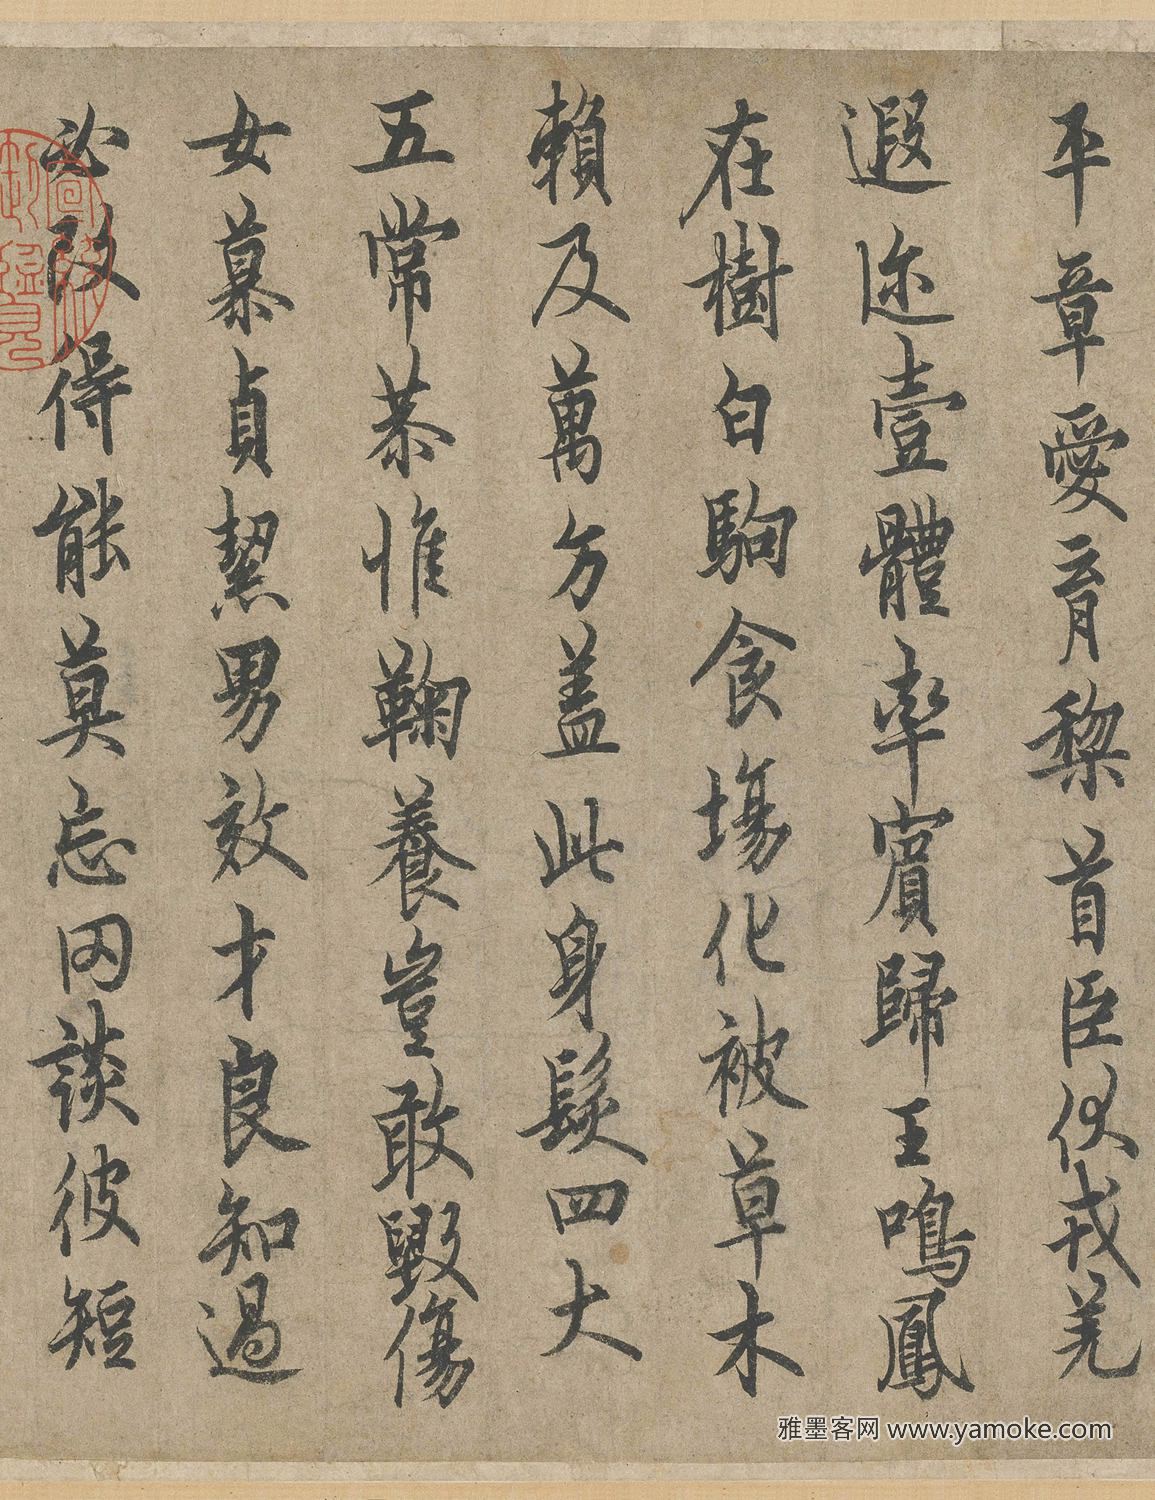 平章愛育黎首臣伏戎羌
遐迩壹體率賓歸王鳴鳳
在樹白駒食場化被草木
賴及萬方盖此身髮四大
五常恭惟鞠養豈敢毀傷
女慕貞絜男效才良知過
必改得能莫忘罔談彼短
雅墨客网 www.yamoke.com